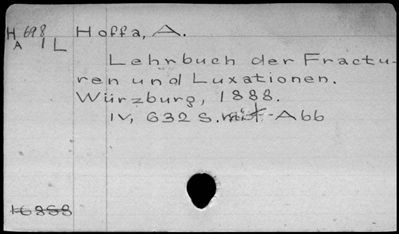 H 698 Hoffa, A.
A 1 L
Lehrbuch der Fractu-
ren und Luxationen.
Würzburg, 1888.
IV, 632 S. mit. Abb
16858